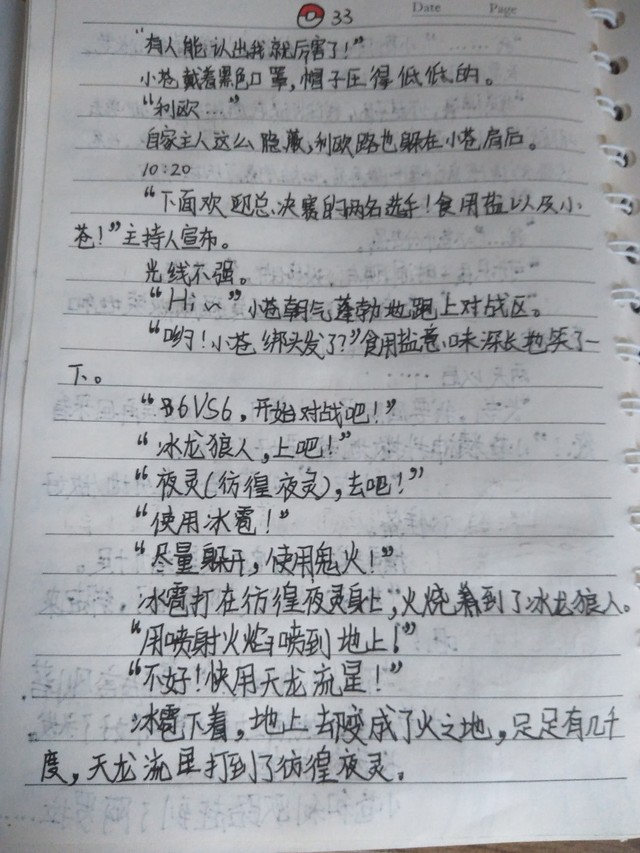 33
Date Page
“有人能认出我就厉害了！”
小苍戴着黑色口罩，帽子压得低低的。
“利欧…”
自家主人这么隐蔽，利欧路也躲在小苍肩后。
10:20
“下面欢迎总决赛的两名选手！食用盐以及小
苍！”主持人宣布。
光线不强。
“Hi~”小苍朝气蓬勃地跑上对战区。
“哟！小苍绑头发了？”食用盐意味深长地笑了一
下。
“6VS6，开始对战吧！”
“冰龙狼人，上吧！”
“夜灵(彷徨夜灵)，去吧！”
“使用冰雹！”
“尽量躲开，使用鬼火！”
冰雹打在彷徨夜灵身上，火烧着到了冰龙狼人。
“用喷射火焰喷到地上！”
“不好！快用天龙流星！”
冰雹下着，地上却变成了火之地，足足有几千
度，天龙流星打到了彷徨夜灵。